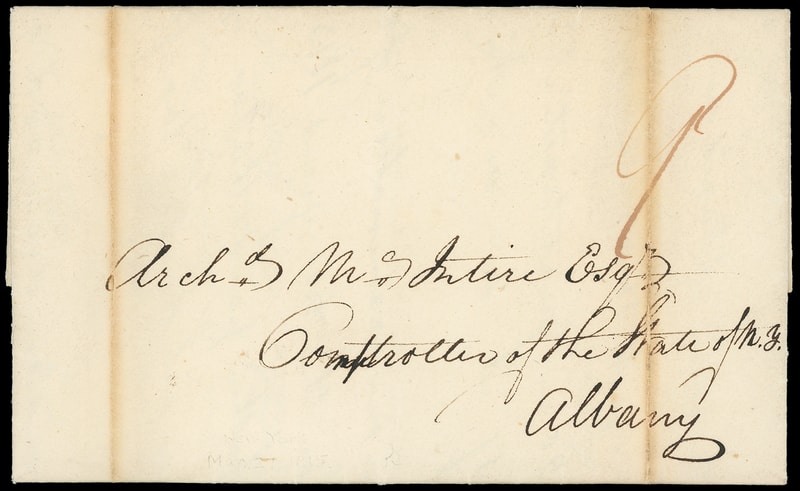 9
Archd. Mc. Intire Esqr.
Comptroller of the State of N.Y.
Albany